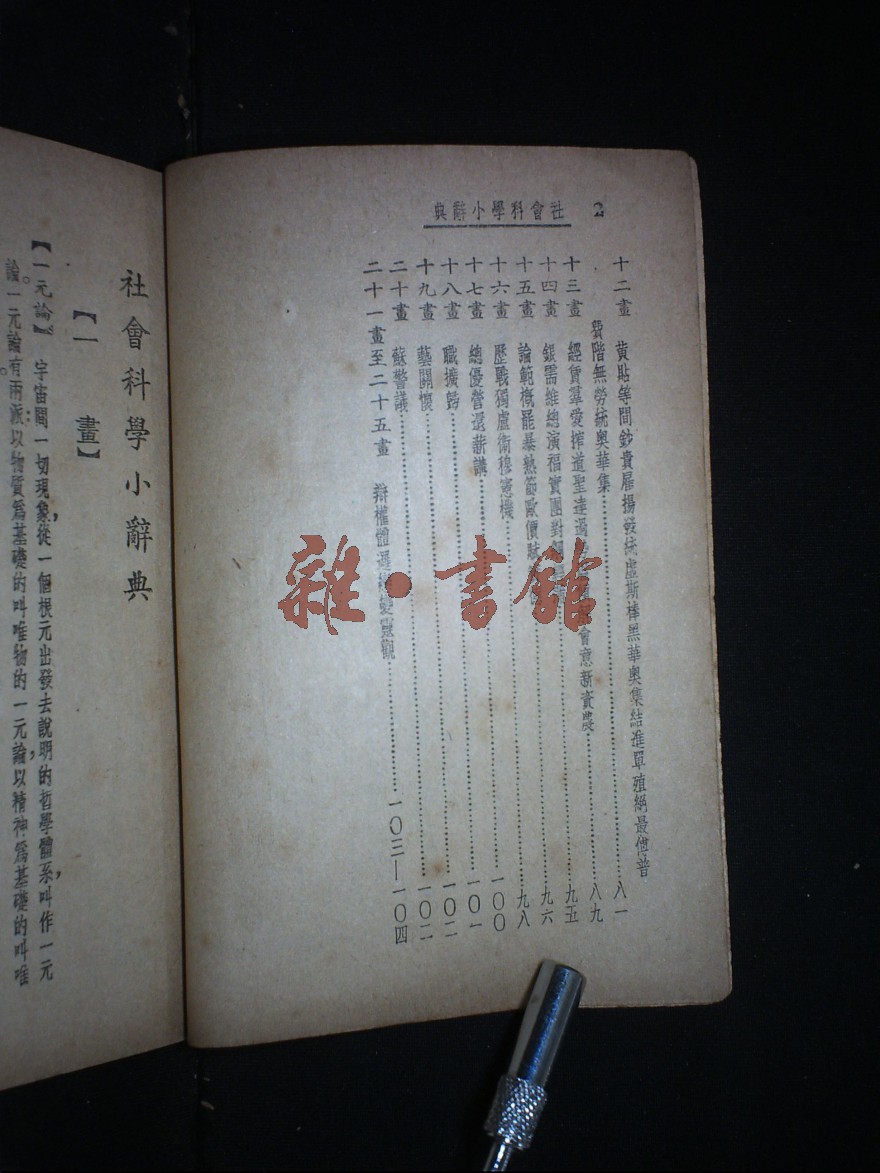 2　社會科學小辭典
十二畫　黃貼等間鈔貴雇揚發統虛斯棒黑華奧集結進單殖絕最傳普
階無勞統奧華集……八一
十三畫　經賃羣愛搾道聖達過會意新資農……八九
十四畫　銀需維總演福實團對……九五
十五畫　論範概罷暴熱節歐價賦……九六
十六畫　歷戰獨盧衛穆憲機……九八
十七畫　總優營還薪講……一〇〇
十八畫　職擴歸……一〇一
十九畫　藝關懷……一〇二
二十畫　蘇警議……一〇二
二十一畫至二十五畫　辯權體邏變靈觀……一〇三—一〇四
社會科學小辭典
【一畫】
【一元論】　宇宙間一切現象，從一個根元出發去說明的哲學體系，叫作一元
論。一元論有兩派：以物質爲基礎的叫唯物的一元論，以精神爲基礎的叫唯
雜·書館